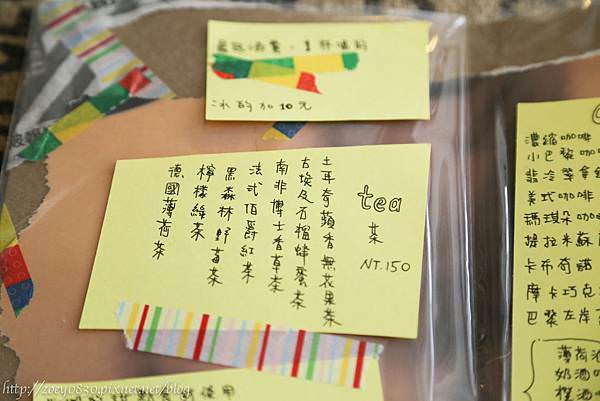 最低消費，1杯飲料
冰的加10元
tea
茶
NT.150
土耳奇蘋香無花果茶
古埃及石榴蜂蜜茶
南非博士香草茶
法式伯爵紅茶
黑森林野莓茶
檸檬綠茶
德國薄荷茶
濃縮咖啡
小巴黎咖
翡冷翠拿鐵
美式咖啡
瑪琪朵咖啡
提拉米蘇
卡布奇諾
摩卡巧克
巴黎左岸
薄荷酒
奶酒咖
橙酒咖
使用
http://zoey0830.pixnet.net/blog